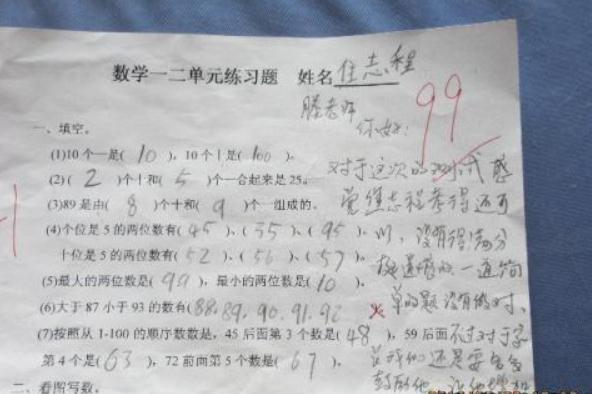 数学一二单元练习题 姓名 佳志程
99
滕老师
你好:
一、填空。
(1)10个一是( 10 ),10个十是( 100 )。
(2)( 2 )个十和( 5 )个一合起来是25。
(3)89是由( 8 )个十和( 9 )个一组成的。
(4)个位是5的两位数有( 45 )、( 35 )、( 95 )、
十位是5的两位数有( 52 )、( 56 )、( 57 )。
(5)最大的两位数是( 99 ),最小的两位数是( 10 )。
(6)大于87小于93的数有(88.89.90.91.92
(7)按照从1-100的顺序数数是,45后面第3个数是( 48 ),59后面
第4个是( 63 ),72前面第5个数是( 67 )。
二、看图写数。
-1
对于这次的测试感
觉佳志程考得还可
以,没有得满分
挺遗憾的一道简
单的题没有做对、
不过对于字
还是要
鼓励他